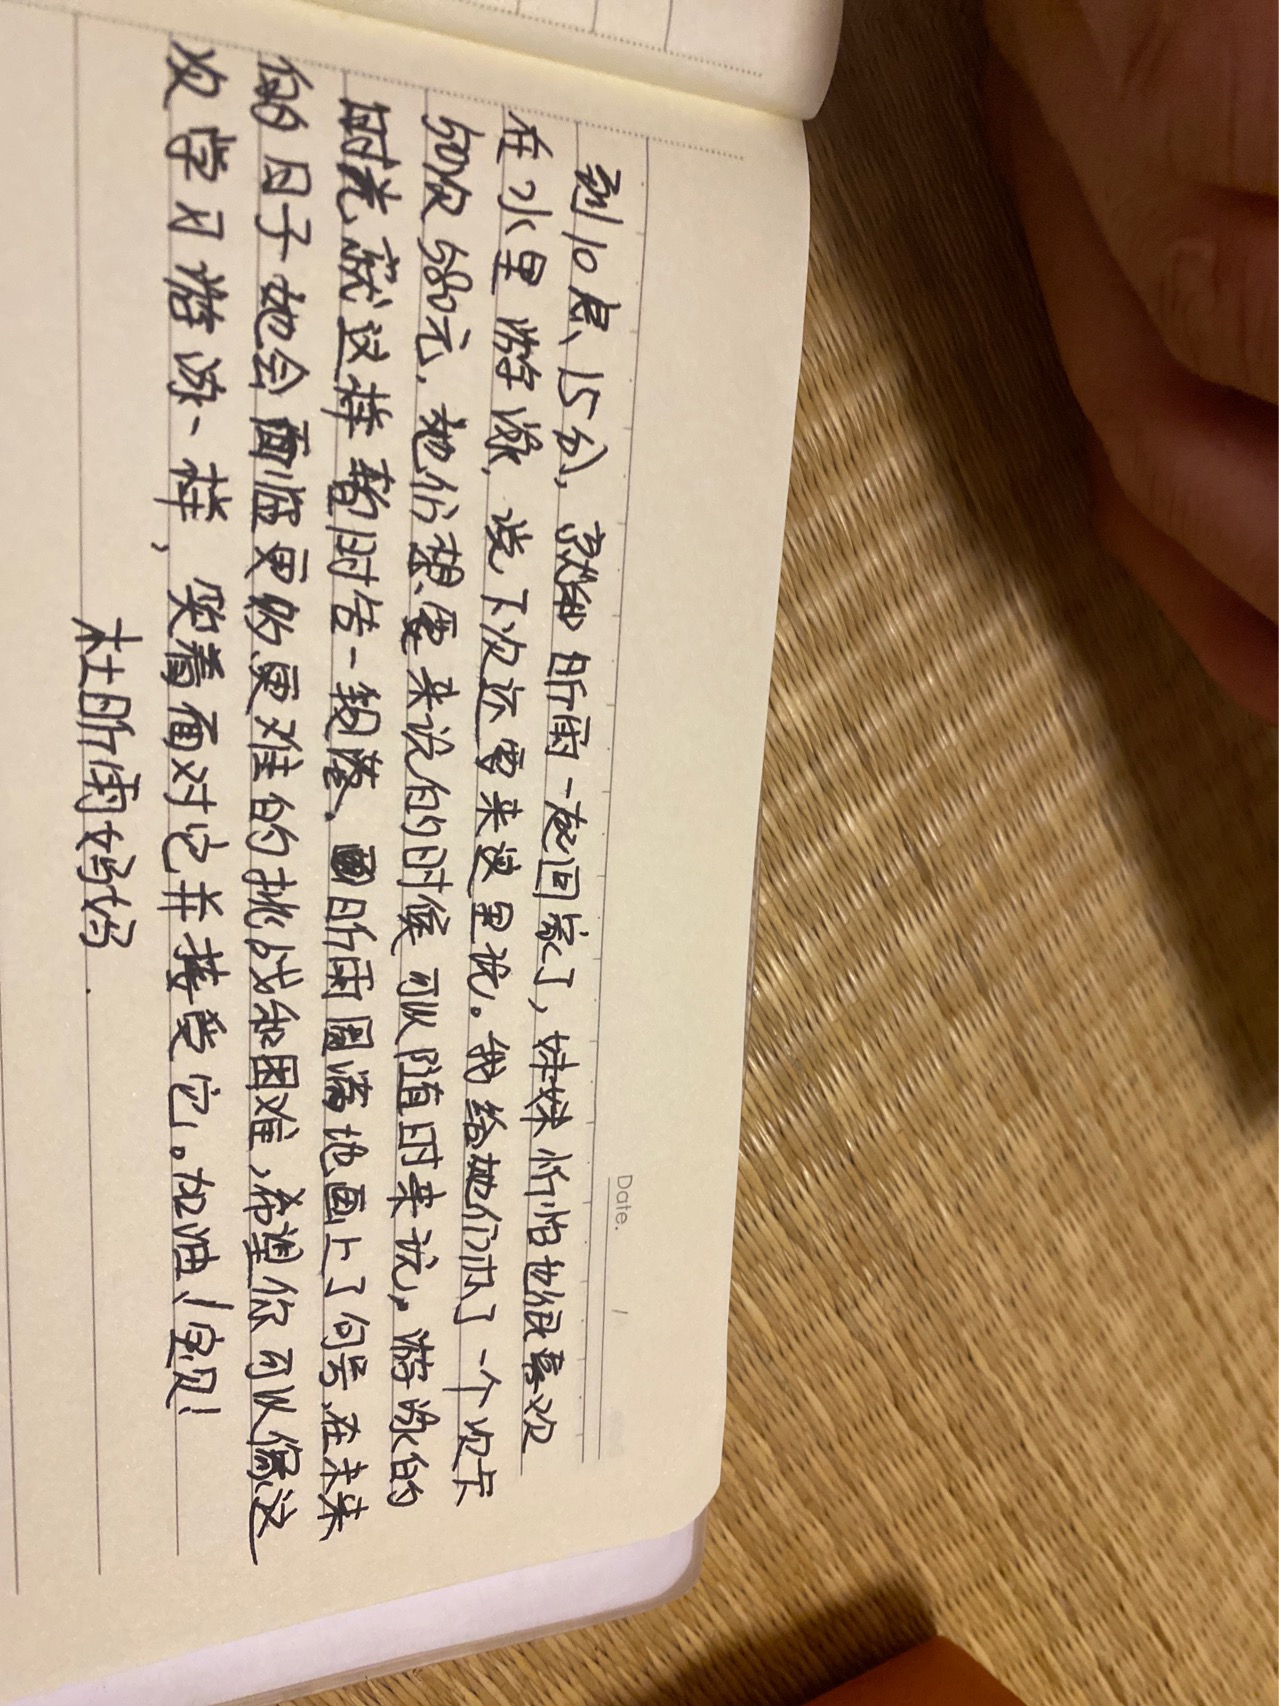 Date.
到10点15分，就和昕雨一起回家了，妹妹忻怡也很喜欢
在水里游泳，说下次还要来这里玩。我给她们办了一个次卡
50次580元，她们想要来玩的时候可以随时来玩。游泳的
时光就这样暂时告一段落。昕雨圆满地画上了句号，在未来
的日子她会面临更多更难的挑战和困难，希望你可以像这
次学习游泳一样，笑着面对它并接受它。加油！宝贝！
杜昕雨妈妈.